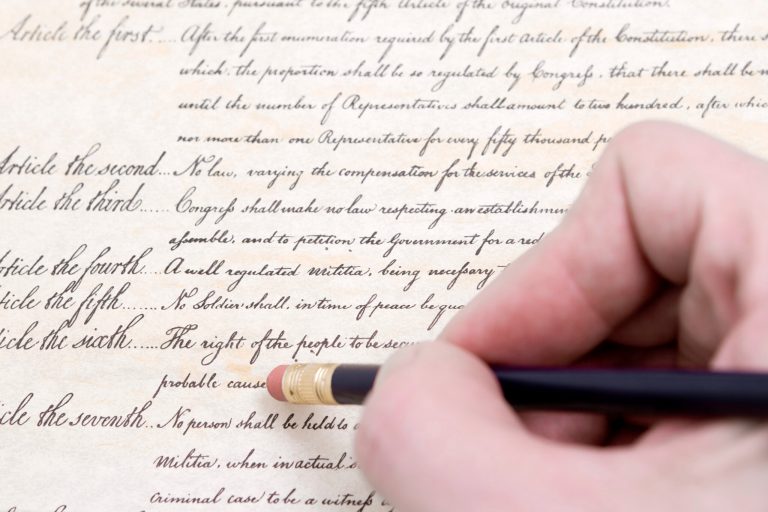 of the several States, pursuant to the fifth Article of the Original Constitution.
Article the first..... After the first enumeration required by the first Article of the Constitution, there s
which, the proportion shall be so regulated by Congress, that there shall be n
until the number of Representatives shall amount to two hundred, after which
nor more than one Representative for every fifty thousand pe
Article the second... No law, varying the compensation for the services of the S
Article the third...... Congress shall make no law respecting an establishmen
assemble, and to petition the Government for a red
Article the fourth.... A well regulated Militia, being necessary t
ticle the fifth........ No Soldier shall, in time of peace be qua
icle the sixth...... The right of the people to be secu
probable cause
cle the seventh.. No person shall be held to a
Militia, when in actual s
criminal case to be a witness ag